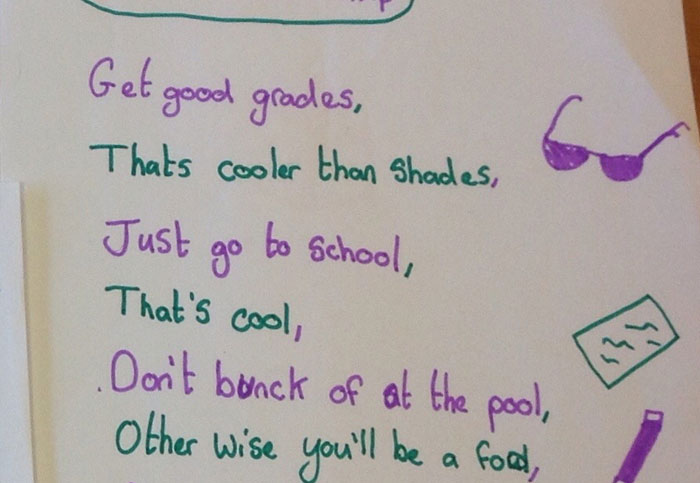 Get good grades,
Thats cooler than shades,
Just go to school,
That's cool,
Don't bunck of at the pool,
Other wise you'll be a fool,